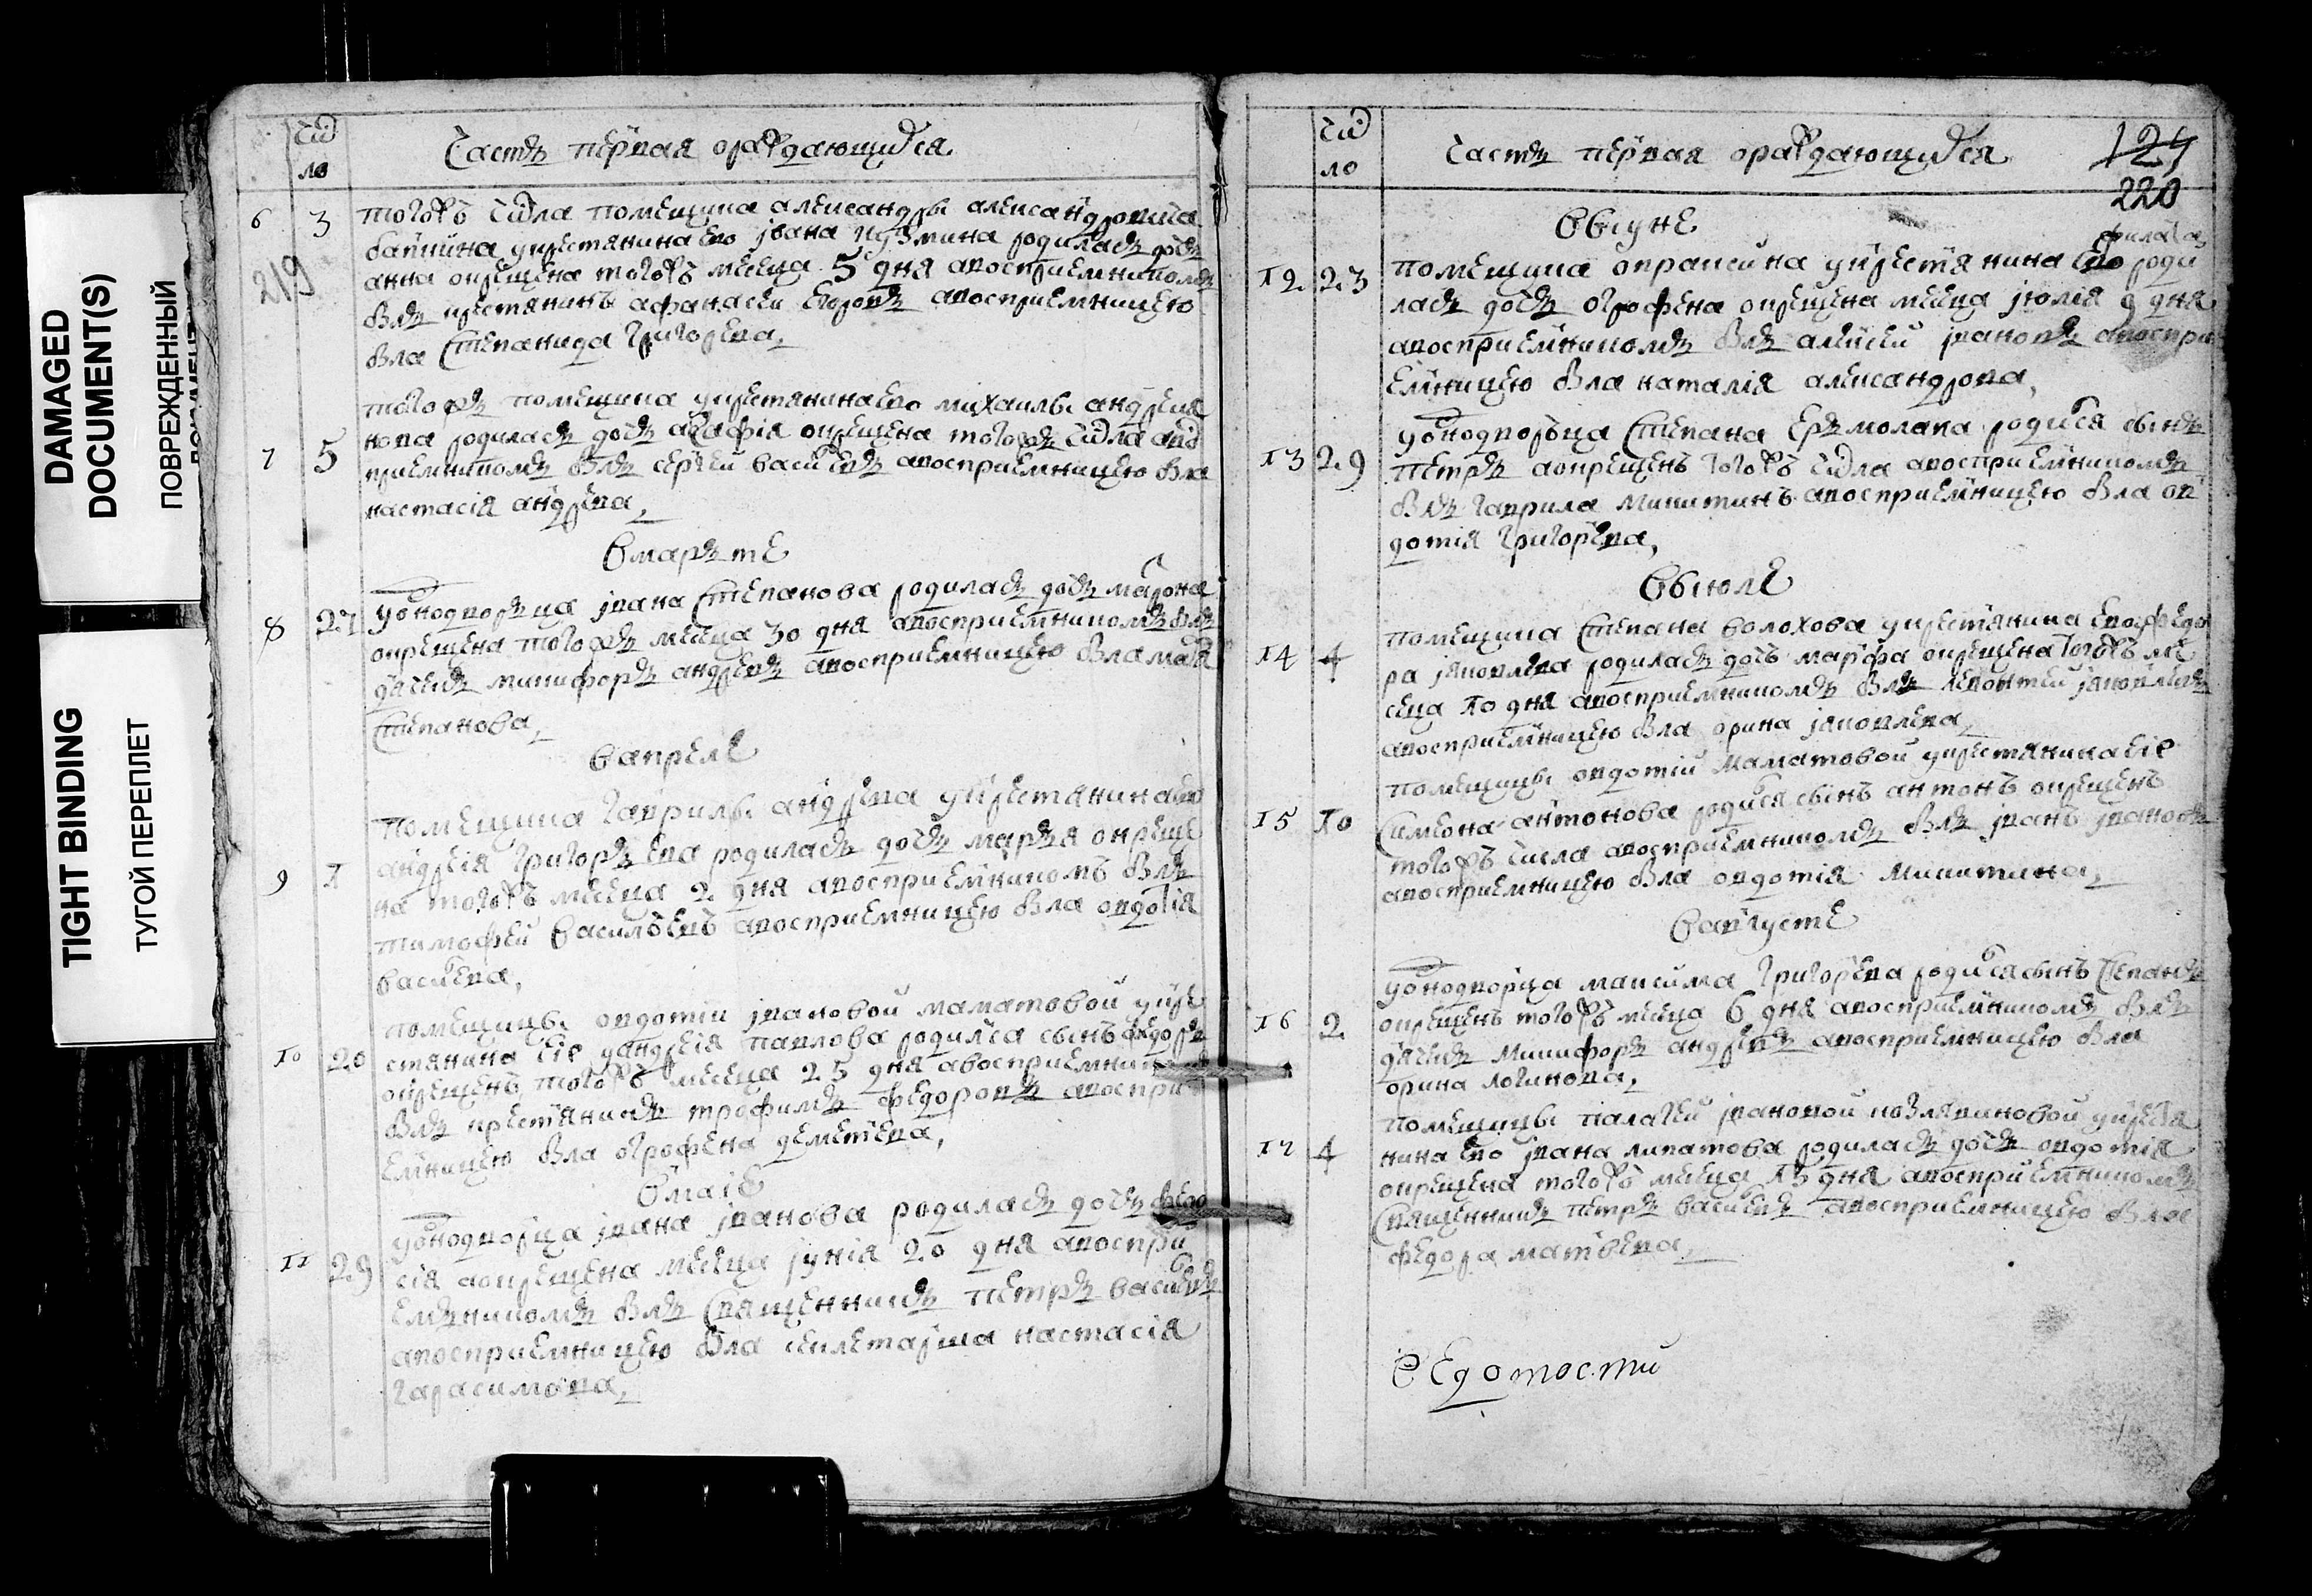 DAMAGED
DOCUMENT(S)
ПОВРЕЖДЕННЫЙ
TIGHT BINDING
ТУГОЙ ПЕРЕПЛЕТ
число
Часть первая ораждающихся
6 3 тогожъ числа помещика александры александровича
219
у крестянина ево ивана кузмина родилась дочь
анна окрещена тогожъ месеца 5 дня авосприемникомъ
былъ крестянинъ афанасеи егоровъ авосприемницею
была степанида григорева,
тогожъ помещика у крестянина ево михаилы андреия
7 5 нова родилась дочь агафия окрещена тогожъ числа авос
приемникомъ былъ сергеи василевъ авосприемницею была
настасия андрева,
вмарьте
8 27 у однодворьца ивана степанова родилась дочь матрона
окрещена тогожъ месеца 30 дня авосприемникомъ былъ
дячекъ никифоръ андревъ авосприемницею была
степанова,
вапреле
помещика гаврилы андрева у крестянина ево
9 1 андрея григорьева родилась дочь марья окреще
на тогожъ месеца 2 дня авосприемникомъ былъ
тимофеи василъевъ авосприемницею была овдотия
василева,
помещицы овдотии ивановой маматовой у кре
10 20 стянина ее андрея павлова родился сынъ федоръ
окрещенъ тогожъ месеца 25 дня авосприемникомъ
былъ крестянинъ трофимъ федоровъ авоспри
емницею была огрофена деметева,
вмаие
11 29 у однодворца ивана иванова родилась дочь федо
сия аокрещена месеца июния 20 дня авоспри
емьникомъ былъ священникъ петръ василевъ
авосприемницею была секлетарша настасия
гарасимова,
число
Часть первая ораждающихся
124
220
виуне
филата
12 23 помещика опраксина у крестянина ево роди
лась дочь огрофена окрещена месеца июлия 9 дня
авосприемникомъ былъ алексеи ивановъ авоспри
емницею была наталия александрова,
13 29 у однодворъца степана ерьмолава родился сынъ
петръ аокрещенъ тогожъ числа авосприемникомъ
былъ гаврила микитинъ авосприемницею была ов
дотия григорева,
виюле
14 4 помещика степана волохова у крестянина ево федо
ра иаковлева родилась дочь марфа окрещена тогожъ ме
сеца 10 дня авосприемникомъ былъ левонтеи иаковлевъ
авосприемницею была орина иаковлева,
помещицы овдотии маматовой у крестянина ее
15 10 симиона антонова родился сынъ антонъ окрещенъ
тогожъ числа авосприемникомъ былъ иванъ ивановъ
авосприемницею была овдотия микитина,
вавгусте
16 2 у однодворца максима григорева родился сынъ степанъ
окрещенъ тогожъ месеца 6 дня авосприемникомъ былъ
дячекъ микифоръ андревъ авосприемницею была
орина логинова,
помещицы палагеи ивановой козляиновой у крестя
17 4 нина ево ивана липатова родилась дочь овдотия
окрещена тогожъ месеца 15 дня авосприемникомъ
священникъ петръ василевъ авосприемницею была
федора матвева,
ведомости